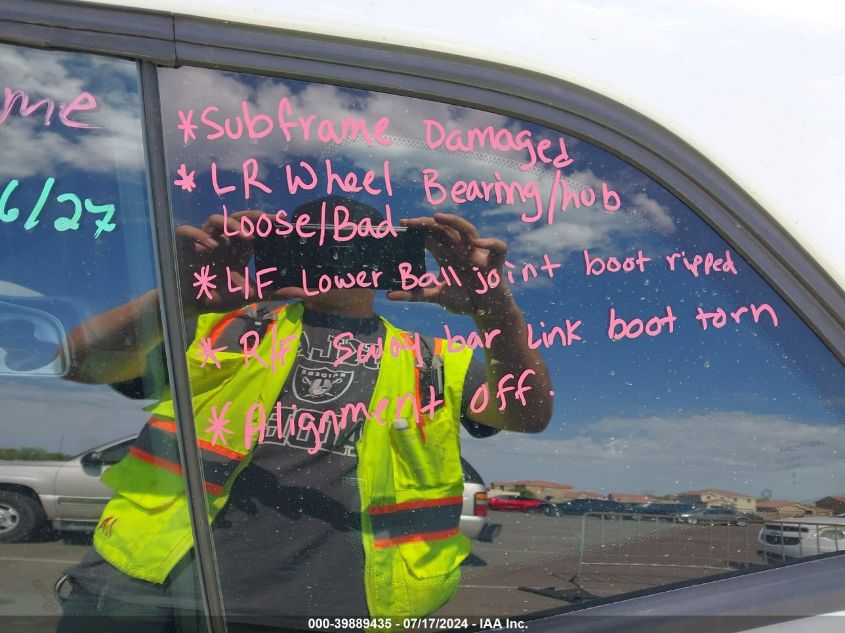 me
6/27
*Subframe Damaged
*LR Wheel Bearing/hub
Loose/Bad
*L/F Lower Ball joint boot ripped
* R/F Sway bar Link boot torn
*Alignment Off.
RAIDERS
000-39889435 - 07/17/2024 - IAA Inc.